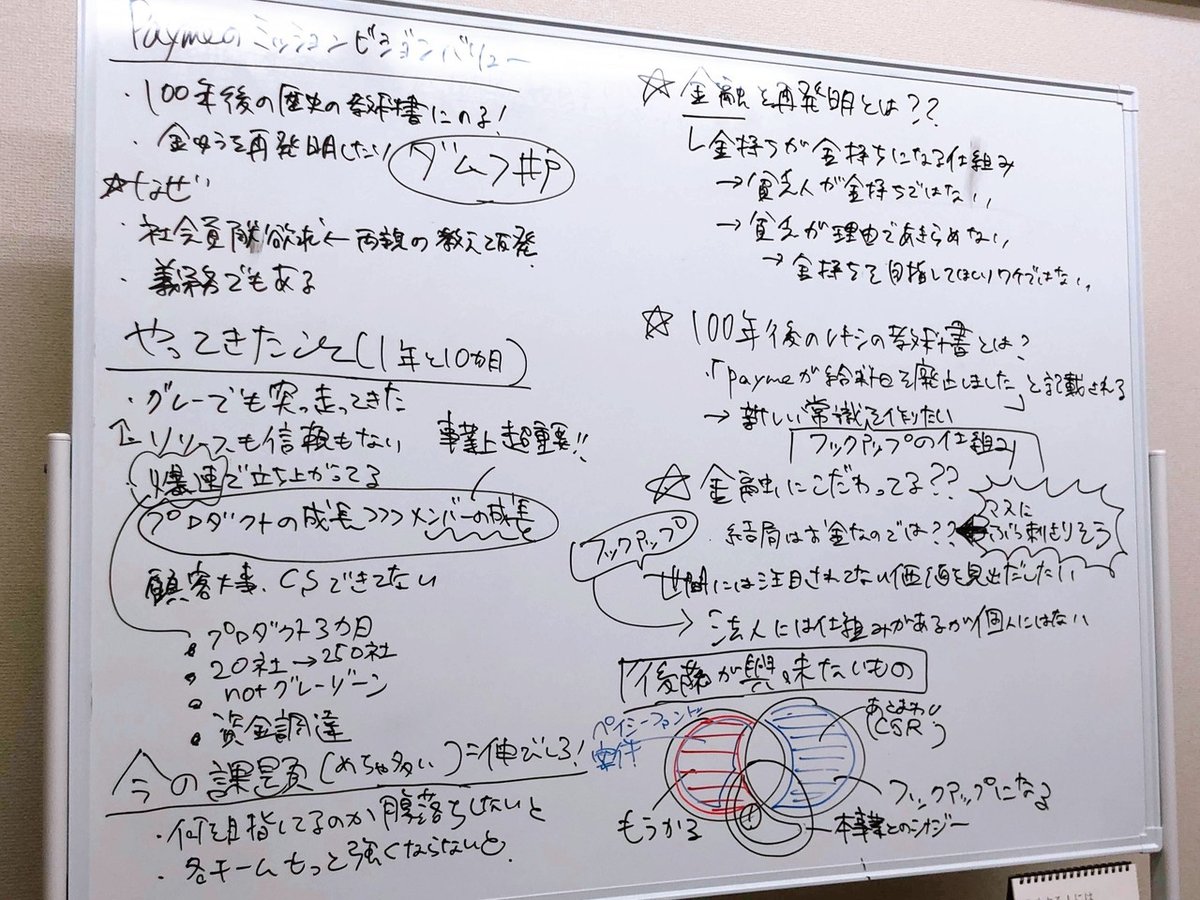 Paymeのミッションビジョンバリュー
・100年後の歴史の教科書にのる!
・金ゆうを再発明したい
☆なぜ
・社会貢献欲求←両親の教え
・義務でもある
やってきたこと(1年と10カ月)
・グレーでも突っ走ってきた
リリースも信頼もない 事業上超重要!!
爆速で立ち上がってる
プロダクトの成長>>>メンバーの成長
顧客大事、CSできてない
プロダクト3カ月
20社→250社
notグレーゾーン
資金調達
今の課題(めちゃ多い)=伸びしろ!
・何を目指してるのか腹落ちしないと
・各チームもっと強くならないと
☆金融を再発明とは??
金持ちが金持ちになる仕組み
→貧乏人が金持ちではない
→貧乏が理由であきらめない
→金持ちを目指してほしいワケではない
☆100年後のレキシの教科書とは?
・「paymeが給料日を廃止しました」と記載される
→新しい常識を作りたい
フックアップの仕組み
☆金融にこだわってる??
結局はお金なのでは??
マスに
ぶち刺さりそう
フックアップ
世間には注目されてない価値を見出だしたい
法人には仕組みがあるが個人にはない
後藤が興味ないもの
ペイシーファンド
もうかる
(CSR)
フックアップになる
本事業とのシナジー